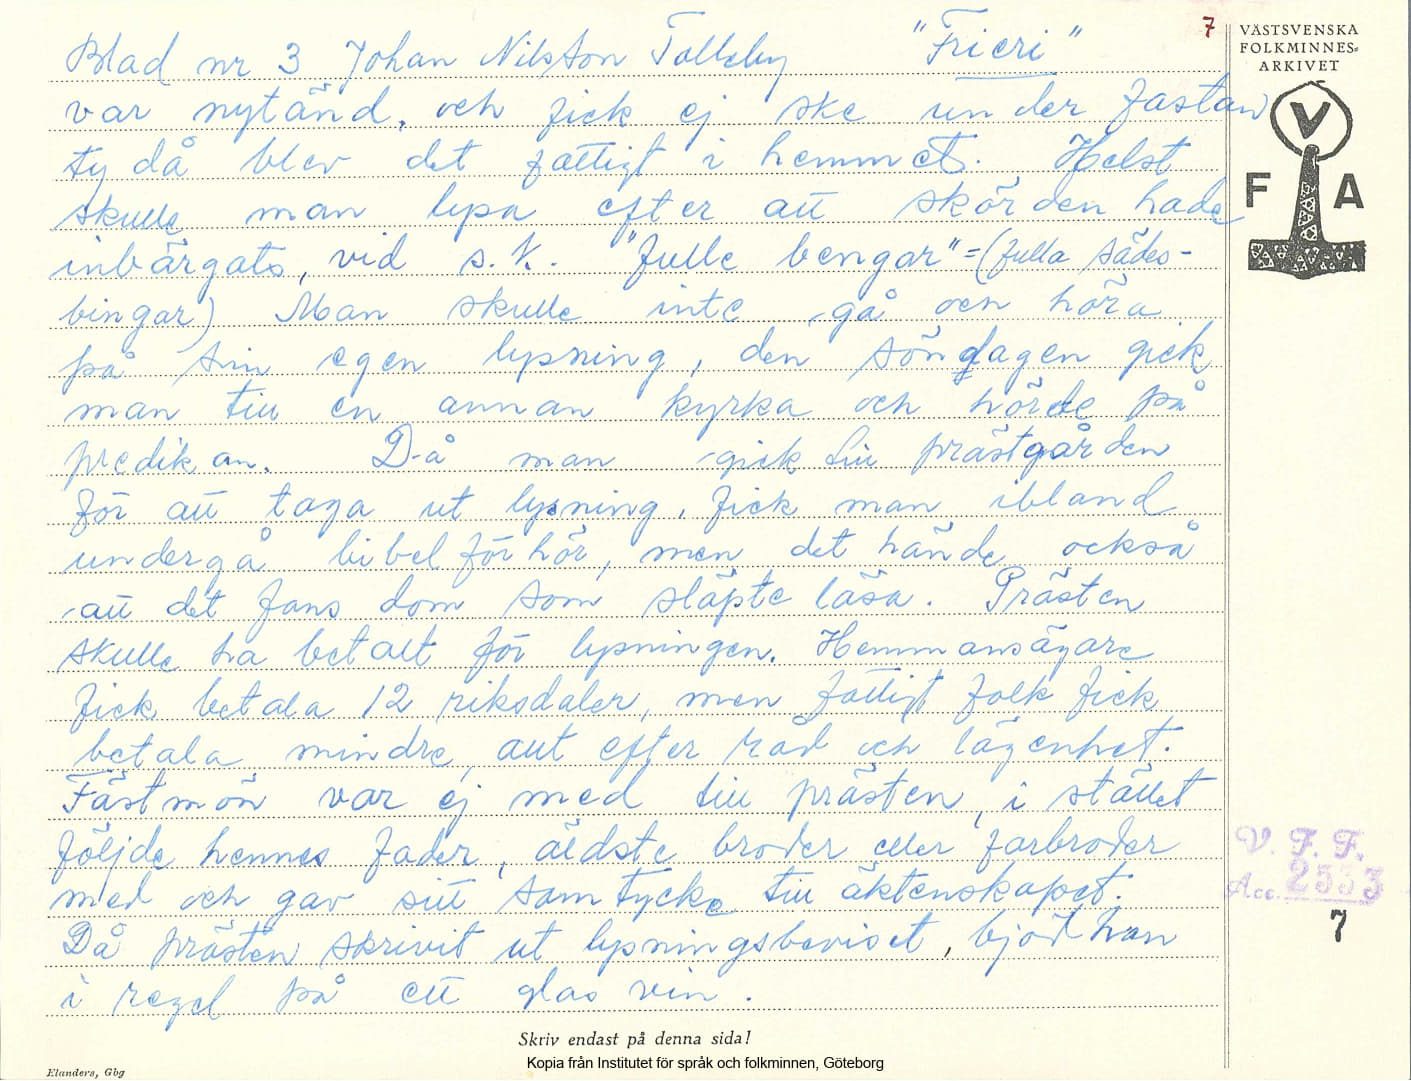 Blad nr 3 Johan Nilsson Tolleby "Frieri"
var nytänd, och fick ej ske under fastan
ty då blev det fattigt i hemmet. Helst
skulle man lysa efter att skörden hade
inbärgats, vid s.k. "fulle bengar" = (fulla sädes-
bingar) Man skulle inte gå och höra
på sin egen lysning, den söndagen gick
man till en annan kyrka och hörde på
predikan. Då man gick till prästgården
för att taga ut lysning, fick man ibland
undergå bibelförhör, men det hände också
att det fans dom som släpte läsa. Prästen
skulle ha betalt för lysningen. Hemmansägare
fick betala 12 riksdaler, men fattigt folk fick
betala mindre, allt efter råd och lägenhet.
Fästmön var ej med till prästen, i stället
följde hennes fader, äldste broder eller farbroder
med och gav sitt samtycke till äktenskapet.
Då prästen skrivit ut lysningsbeviset, bjöd han
i regel på ett glas vin.
7
VÄSTSVENSKA
FOLKMINNES-
ARKIVET
V
F A
V. F. F.
Acc. 2553
7
Skriv endast på denna sida!
Kopia från Institutet för språk och folkminnen, Göteborg
Elanders, Gbg